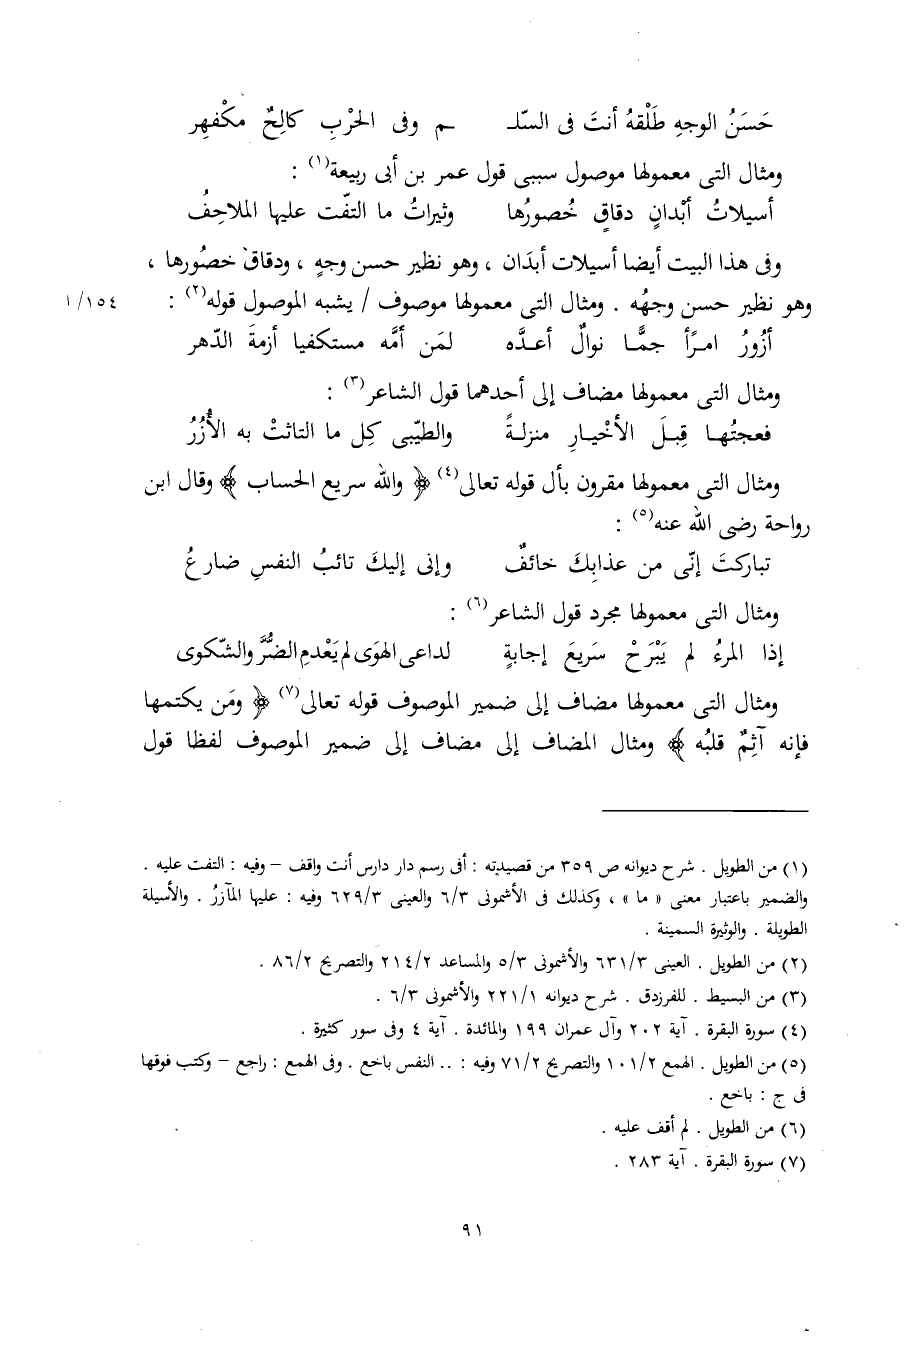 حَسَنُ الوجهِ طَلْقهُ أنتَ فى السّلـ ـم وفى الحَرْبِ كالِحٌ مكْفهِر
ومثال التى معمولها موصول سببى قول عمر بن أبى ربيعة(١) :
أسيلاتُ أبْدانٍ دقاقٍ خُصورُها وثيراتُ ما التفّت عليها الملاحِفُ
وفى هذا البيت أيضا أسيلات أبدَان ، وهو نظير حسن وجهٍ ، ودقاق خصُورها ،
وهو نظير حسن وجهُه . ومثال التى معمولها موصوف / يشبه الموصول قوله(٢) : ١/١٥٤
أزُورُ امرًأ جمًّا نوالٌ أعدَّه لمَن أمَّه مستكفيا أزمةَ الدّهر
ومثال التى معمولها مضاف إلى أحدهما قول الشاعر(٣) :
فعجتُها قِبلَ الأخْيارِ منزلةً والطيّبى كِل ما التاثتْ به الأُزُرُ
ومثال التى معمولها مقرون بأل قوله تعالى(٤) ﴿ والله سريع الحساب ﴾ وقال ابن
رواحة رضى الله عنه(٥) :
تباركتَ إنّى من عذابِكَ خائفٌ وإنى إليكَ تائبُ النفسِ ضارعُ
ومثال التى معمولها مجرد قول الشاعر(٦) :
إذا المرءُ لم يَبْرَحْ سَريعَ إجابةٍ لداعى الهوَى لم يَعْدمِ الضُّرَّ والشّكوى
ومثال التى معمولها مضاف إلى ضمير الموصوف قوله تعالى(٧) ﴿ ومَن يكتمها
فإنه آثِمٌ قلبُه ﴾ ومثال المضاف إلى مضاف إلى ضمير الموصوف لفظا قول
(١) من الطويل . شرح ديوانه ص ٣٥٩ من قصيدته : أفى رسم دار دارس أنت واقف – وفيه : التفت عليه .
والضمير باعتبار معنى « ما » ، وكذلك فى الأشمونى ٦/٣ والعينى ٦٢٩/٣ وفيه : عليها المآزرُ . والأسيلة
الطويلة . والوثيرة السمينة .
(٢) من الطويل . العينى ٦٣١/٣ والأشمونى ٥/٣ والمساعد ٢١٤/٢ والتصريح ٨٦/٢ .
(٣) من البسيط . للفرزدق . شرح ديوانه ٢٢١/١ والأشمونى ٦/٣ .
(٤) سورة البقرة . آية ٢٠٢ وآل عمران ١٩٩ والمائدة . آية ٤ وفى سور كثيرة .
(٥) من الطويل . الهمع ١٠١/٢ والتصريح ٧١/٢ وفيه : .. النفس باخع . وفى الهمع : راجع – وكتب فوقها
فى ج : باخع .
(٦) من الطويل . لم أقف عليه .
(٧) سورة البقرة . آية ٢٨٣ .
٩١